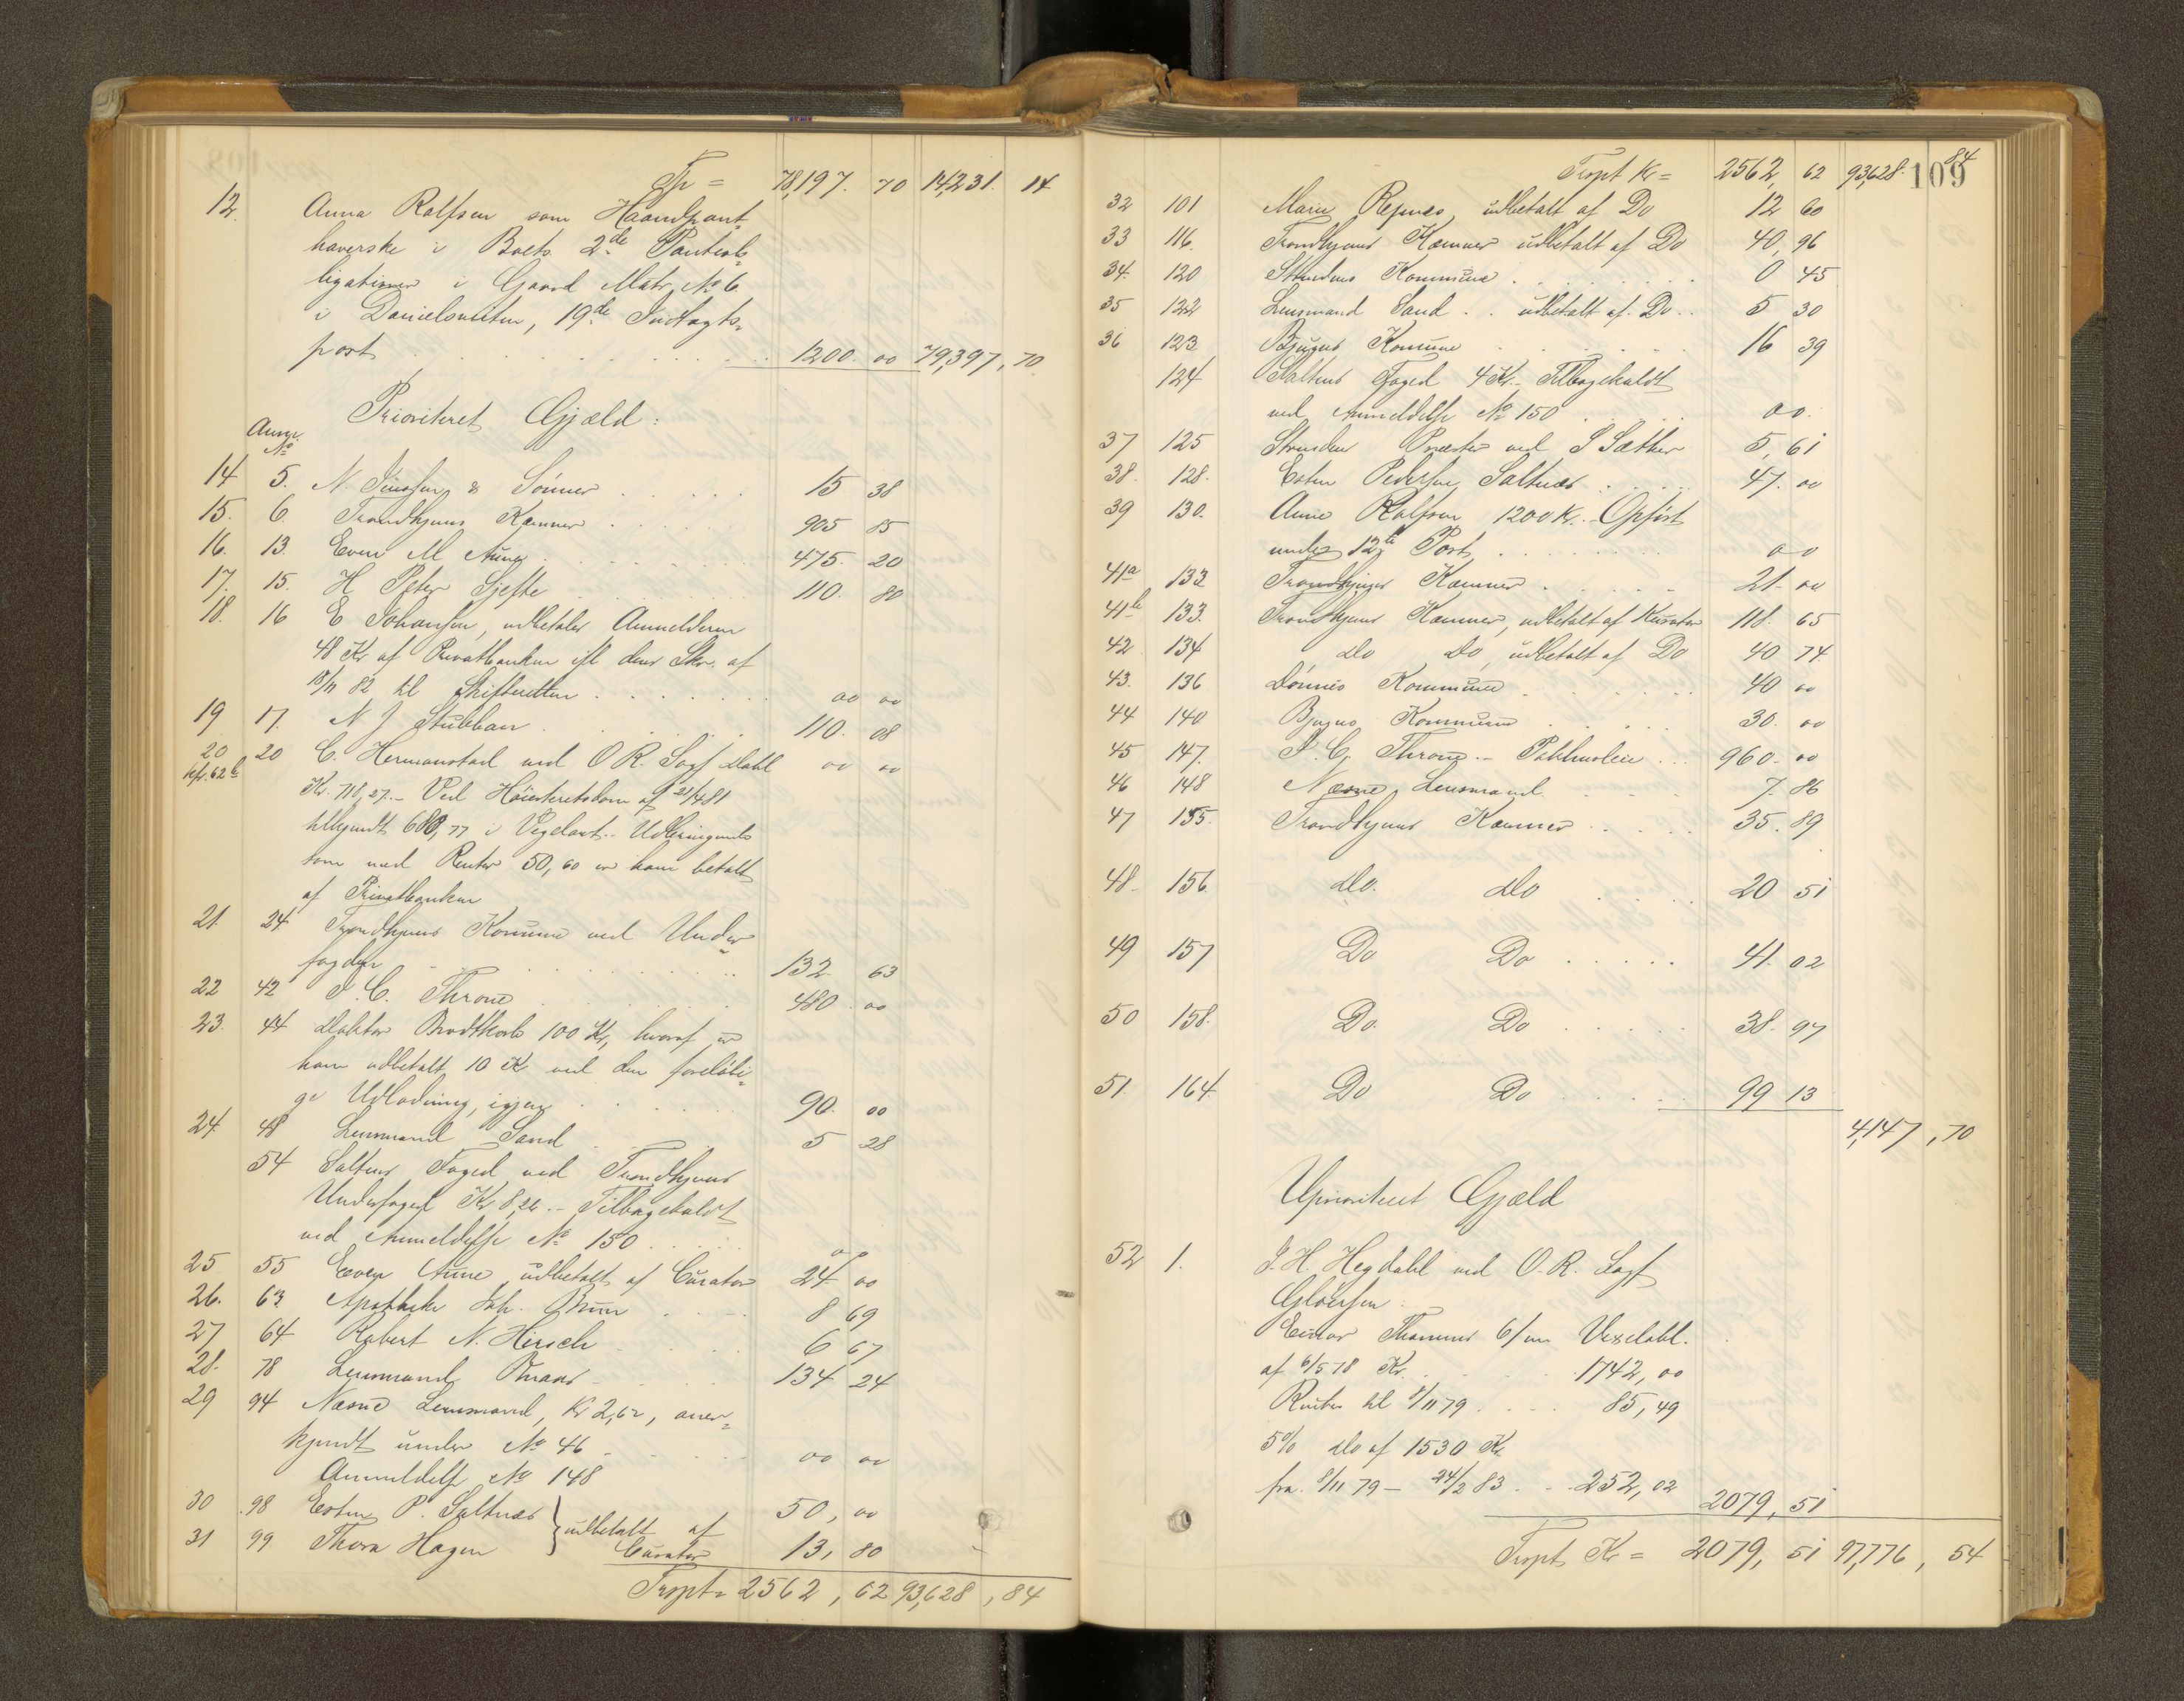 Tp = 78,197. 70 14,231. 14
12. Anna Rolfsen som Haandpant-
haverske i Boets 2de Pantob-
ligationer i Gaard Matr. No 6
i Danielsveiten, 19de Indtægts-
post . . . 1200. 00 79,397, 70
Prioriteret Gjæld:
Anm. No
14 5. N. & Sönner . . . 15 38
15. 6. Trondhjems Kæmner . . . 905 85
16. 13. Even M Aune . . . 475. 20
17. 15. H Peter . . . 110. 80
18. 16 E Johansen, udbetales Anmelderen
48 Kr af Privatbanken ifl dens Skr. af
18/11 82 til Skifteretten . . . 00 00
19 17. N J Stubban . . . 110. 08
20 20 C. Hermanstad ved O R. Sagf Dahl 00 00
kfr. 62 b
Kr. 718,27.- Ved Höiesteretsdom af 21/4 81
tilkjendt 680,77 i
som med Renter 50,60 er ham betalt
af Privatbanken
21. 24 Trondhjems Kommune ved Under-
fogden . . . 132 63
22 42 P. C. Throne . . . 480. 00
23. 44 Doktor Brodtkorb 100 Kr, hvoraf er
ham udbetalt 10 Kr ved den forelöbi-
ge Udlodning, igjen . . . 90. 00
24. 48 Lensmand Sand . . . 5 28
54 Saltens Foged ved Trondhjems
Underfoged Kr 8,26.- Tilbagekaldt
ved Anmeldelse No 150 . . . 00
25 55 Even Aune udbetalt af Curator 24. 00
26. 63 Apotheker Joh. Bruun . . . 8 69
27 64 Robert N. Hirsch . . . 6 67
28. 78 Lensmand . . . 134 24
29 94 Næsne Lensmand, Kr 2,62, aner-
kjendt under No 46 . . . 00 00
Anmeldelse No 148
30 98 Esten P. Saltnæs } udbetalt af 50, 00
31 99 Thora Hagen Curator 13, 80
Trspt = 2562, 62 93,628, 84
109
Trspt Kr = 2562, 62 93,628. 84
32 101 Marie Repnæs, udbetalt af Do 12 60
33 116. Trondhjems Kæmner udbetalt af Do 40, 96
34. 120 Strindens Kommune . . . 0 45
35 122 Lensmand Sand . . udbetalt af Do . . 5 30
36 123. Bjugns Komune . . . 16 39
124 Saltens Foged 4 Kr.- Tilbagekaldt
ved Anmeldelse No 150 . . . 00.
37 125 Strindens Præster ved S Sæther 5, 61
38. 128. Esten Pedersen Saltnæs . . . 47. 00
39 130. Anne Rolfsen 1200 Kr. Opfört
under 12te Post . . . 00
41a 133 Trondhjems Kæmner . . . 21- 00
41b 133. Trondhjems Kæmner, udbetalt af Kurator 118. 65
42 134 Do Do, udbetalt af Do 40 74
43. 136 Dönnes Kommune . . . 40 00
44 140 Bjugns Kommune . . . 30. 00
45 147. P. C. Throne.- Pakhusleie . . . 960- 00
46 148 Næsne Lensmand . . . 7- 86
47 155. Trondhjems Kæmner . . . 35. 89
48- 156. Do. Do . . . 20 51
49 157 Do Do . . . . . 41. 02
50 158. Do. Do . . . . . 38. 97
51. 164. Do Do . . . . . 99 13
4,147, 70
Uprioriteret Gjæld
52 1. J. H. Hegdahl ved O. R. Sagf
Glöersen:
Einar Thommes 6/m Vexelobl.
af 6/5 78 Kr. . . . 1742, 00
Renter til 8/11 79 . . . . 85, 49
5% Do af 1530 Kr
fra 8/11 79 - 24/2 83 . . . 252, 02 2079, 51
Trspt Kr = 2079, 51 97,776, 54